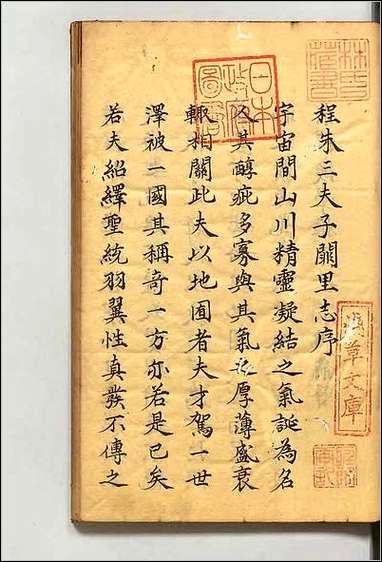 程朱三夫子闕里志序
宇宙間山川精靈凝結之氣誕為名
人其醇疵多寡與其氣之厚薄盛衰
輒相關此夫以地囿者夫才駕一世
澤被一國其稱奇一方亦若是已矣
若夫紹繹聖統羽翼性真發不傳之
林氏藏書
日本政府圖書
淺草文庫